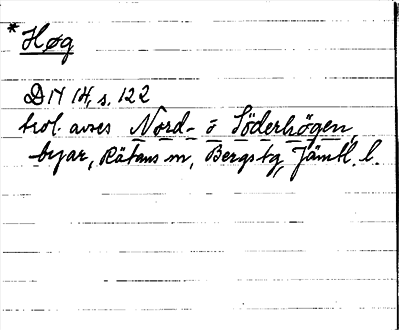 * Høg
DN 14, s. 122
trol. avses Nord- o Söderhögen,
byar, Rätans sn, Bergs tg, Jämtl. l.